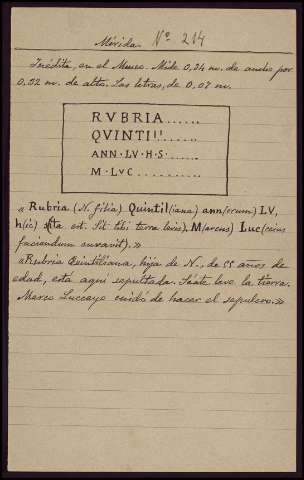 Mérida. Nº 214
Inédita, en el Museo. Mide 0,24 m. de ancho por
0.02 m. de alto. Las letras, de 0.07 m.
RVBRIA......
QVINTIII......
ANN·LV·H·S·....
M·LVC.........
«Rubria (N. filia) Quintil(iana) ann(orum) LV,
h(ic) sita est. Sit tibi terra levis). M(arcus) Luc(ceius
faciendum curavit).»
«Rubria Quintiliana, hija de N., de 55 años de
edad, está aquí sepultada. Séate leve la tierra.
Marco Lucceyo cuidó de hacer el sepulcro.»